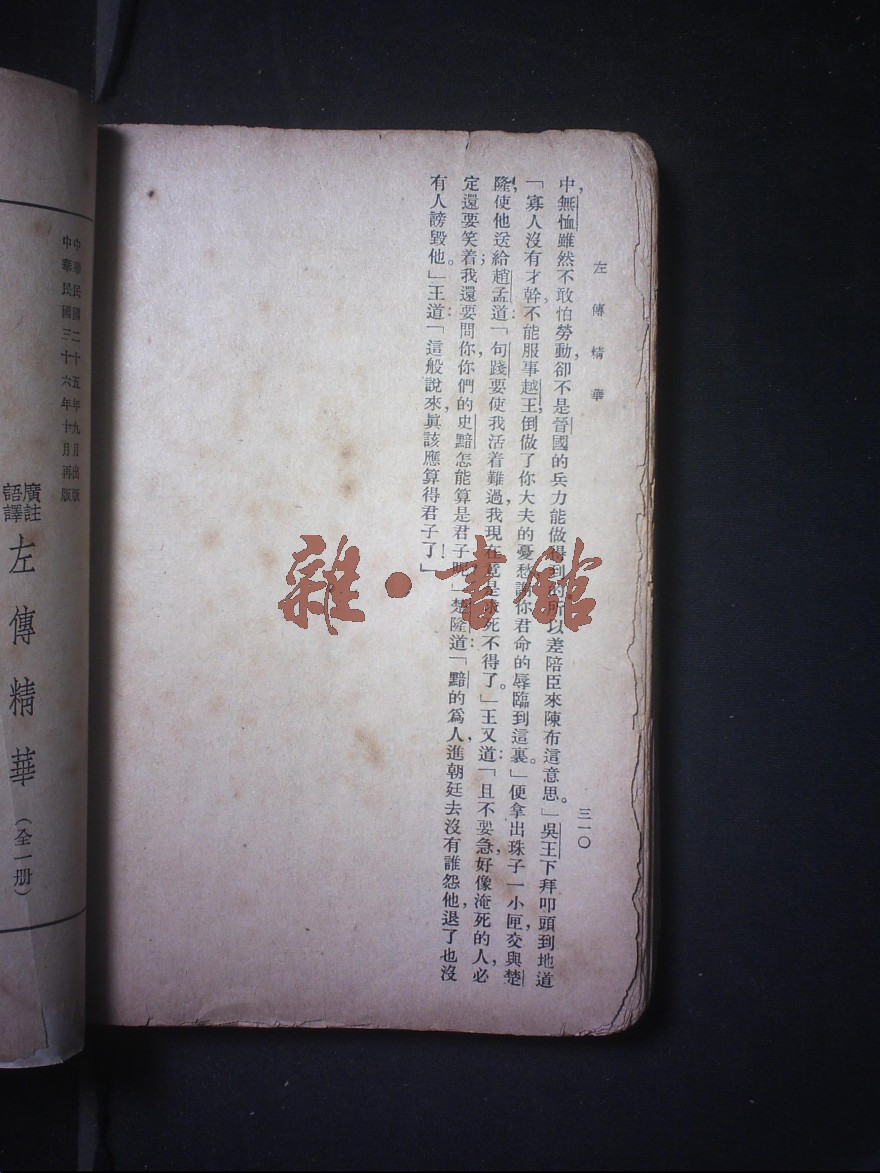 左傳精華
三一〇
中，無恤雖然不敢怕勞動，卻不是晉國的兵力能做得到的，所以差陪臣來陳布這意思。」吳王下拜叩頭到地道：
「寡人沒有才幹，不能服事越王，倒做了你大夫的憂愁，謝你君命的辱臨到這裏。」便拿出珠子一小匣，交與楚
隆，使他送給趙孟道：「句踐要使我活着難過，我現在竟是求死不得了。」王又道：「且不要急，好像淹死的人，必
定還要笑着；我還要問你，你們的史黯怎能算是君子呢？」楚隆道：「黯的爲人，進朝廷去沒有誰怨他，退了也沒
有人謗毀他。」王道：「這般說來，眞該應算得君子了！」
雜·書館
中華民國二十五年九月出版
中華民國三十六年十月再版
廣註
語譯
左傳精華
（全一册）